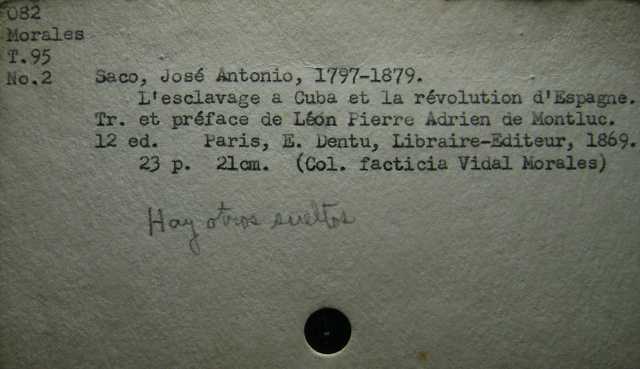 082
Morales
T.95
No.2 Saco, José Antonio, 1797-1879.
L'esclavage a Cuba et la révolution d'Espagne.
Tr. et préface de Léon Pierre Adrien de Montluc.
12 ed. Paris, E. Dentu, Libraire-Editeur, 1869.
23 p. 21cm. (Col. facticia Vidal Morales)
Hay otros sueltos